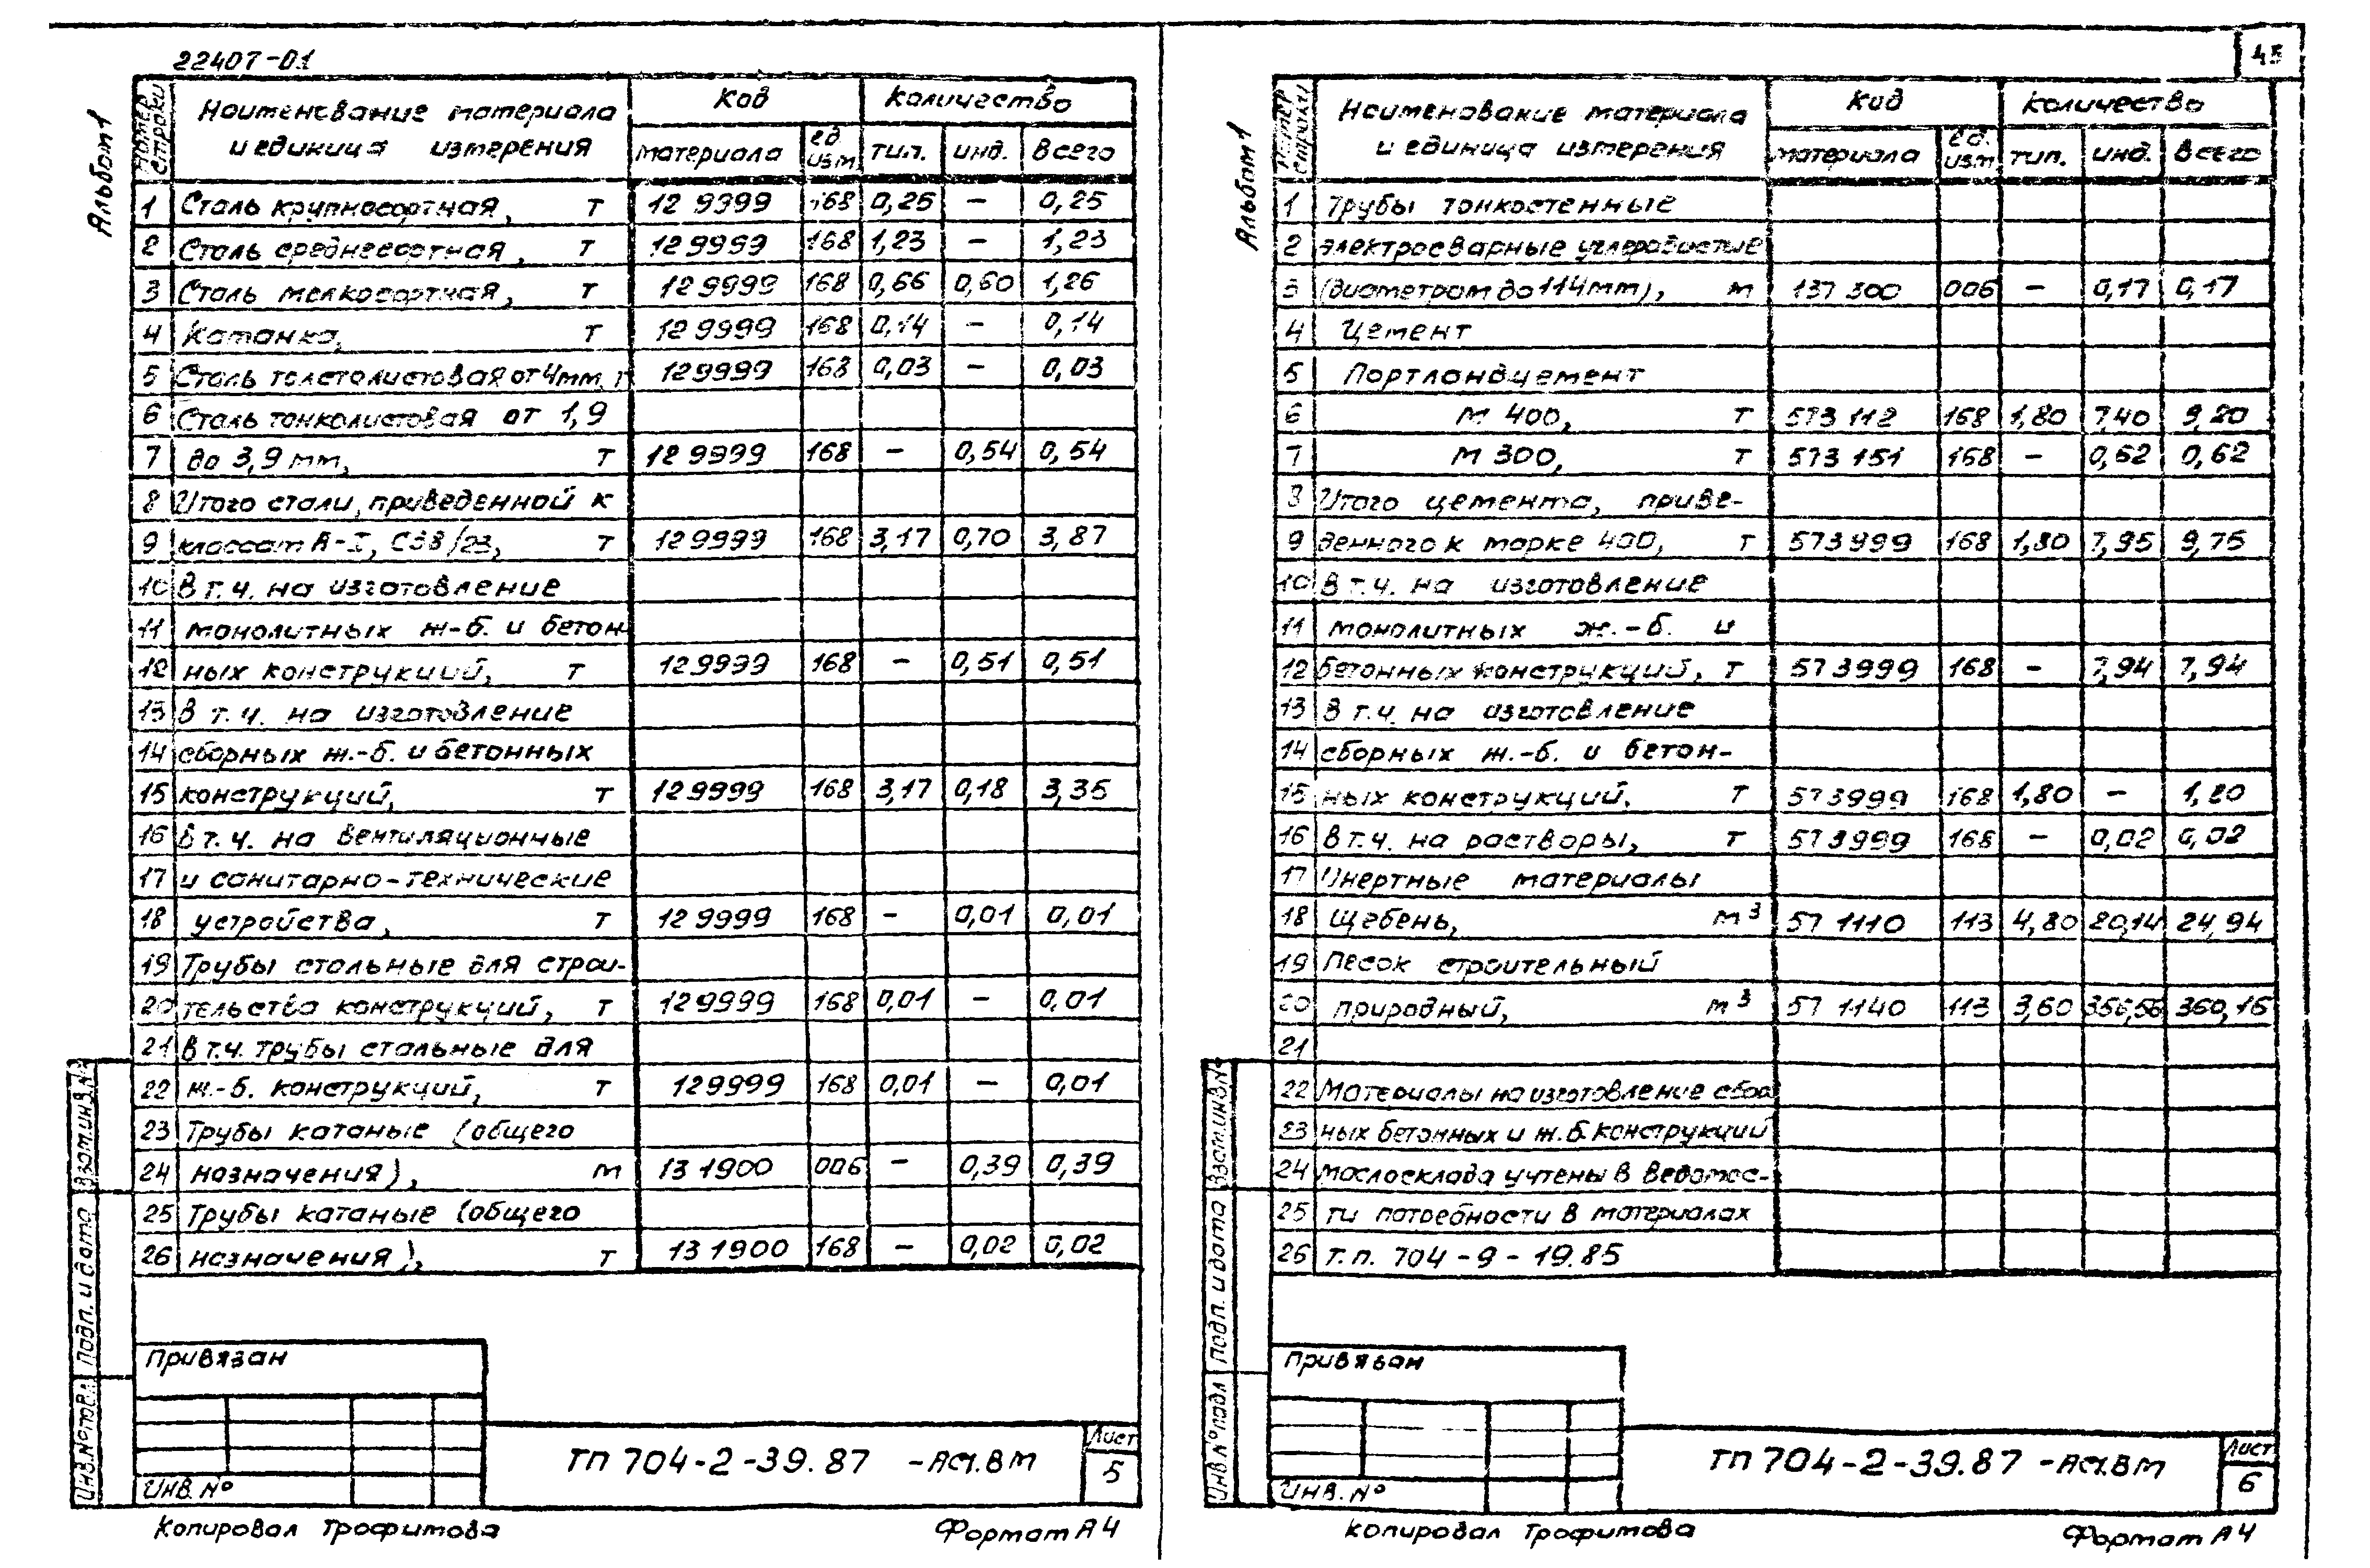 22407-01
Альбом 1
Номер строки | Наименование материала и единица измерения | Код | Количество
материала | ед. изм. | тип. | инд. | всего
1 Сталь крупносортная, т 12 9999 168 0,25 – 0,25
2 Сталь среднесортная, т 12 9999 168 1,23 – 1,23
3 Сталь мелкосортная, т 12 9999 168 0,66 0,60 1,26
4 Катанка, т 12 9999 168 0,14 – 0,14
5 Сталь толстолистовая от 4мм, т 12 9999 168 0,03 – 0,03
6 Сталь тонколистовая от 1,9
7 до 3,9 мм, т 12 9999 168 – 0,54 0,54
8 Итого стали, приведенной к
9 классам А-I, С38/23, т 12 9999 168 3,17 0,70 3,87
10 В т.ч. на изготовление
11 монолитных ж-б. и бетон-
12 ных конструкций, т 12 9999 168 – 0,51 0,51
13 В т.ч. на изготовление
14 сборных ж.-б. и бетонных
15 конструкций, т 12 9999 168 3,17 0,18 3,35
16 В т.ч. на вентиляционные
17 и санитарно-технические
18 устройства, т 12 9999 168 – 0,01 0,01
19 Трубы стальные для строи-
20 тельства конструкций, т 12 9999 168 0,01 – 0,01
21 В т.ч. трубы стальные для
22 ж.-б. конструкций, т 12 9999 168 0,01 – 0,01
23 Трубы катаные (общего
24 назначения), м 13 1900 006 – 0,39 0,39
25 Трубы катаные (общего
26 назначения), т 13 1900 168 – 0,02 0,02
Взам.инв.№
Подп. и дата
Инв.№подл
Привязан
Инв. №
ТП 704-2-39.87 -АС1.ВМ
Лист
5
Копировал Трофимова
Формат А4
45
Альбом 1
Номер строки | Наименование материала и единица измерения | Код | Количество
материала | ед. изм | тип. | инд. | всего
1 Трубы тонкостенные
2 электросварные углеродистые
3 (диаметром до 114мм), м 137 300 006 – 0,17 0,17
4 Цемент
5 Портландцемент
6 М 400, т 573 112 168 1,80 7,40 9,20
7 М 300, т 573 151 168 – 0,62 0,62
8 Итого цемента, приве-
9 денного к марке 400, т 573999 168 1,80 7,95 9,75
10 В т.ч. на изготовление
11 монолитных ж.-б. и
12 бетонных конструкций, т 573999 168 – 7,94 7,94
13 В т.ч. на изготовление
14 сборных ж.-б. и бетон-
15 ных конструкций, т 573999 168 1,80 – 1,80
16 В т.ч. на растворы, т 573999 168 – 0,02 0,02
17 Инертные материалы
18 Щебень, м³ 57 1110 113 4,80 20,14 24,94
19 Песок строительный
20 природный, м³ 57 1140 113 3,60 356,56 360,16
21
22 Материалы на изготовление сбор
23 ных бетонных и ж.б. конструкций
24 маслосклада учтены в ведомос-
25 ти потребности в материалах
26 т.п. 704-9-19.85
Взам.инв.№
Подп. и дата
Инв №подл
Привязан
Инв. №
ТП 704-2-39.87 -АС1.ВМ
Лист
6
Копировал Трофимова
Формат А4